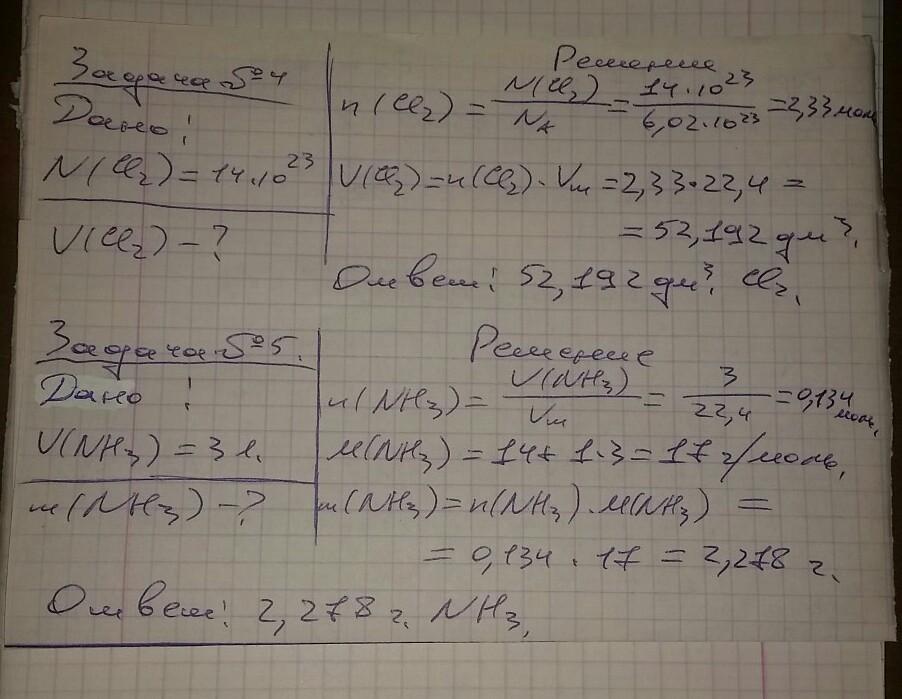 Задача №4
Дано:
N(Cl₂) = 14·10²³
V(Cl₂) – ?
Решение
n(Cl₂) = N(Cl₂)/N_A = 14·10²³/6,02·10²³ = 2,33 моль
V(Cl₂) = n(Cl₂)·Vm = 2,33·22,4 =
= 52,192 дм³.
Ответ: 52,192 дм³. Cl₂.
Задача №5.
Дано:
V(NH₃) = 3 л.
m(NH₃) – ?
Решение
n(NH₃) = V(NH₃)/Vm = 3/22,4 = 0,134 моль.
M(NH₃) = 14 + 1·3 = 17 г/моль.
m(NH₃) = n(NH₃)·M(NH₃) =
= 0,134 · 17 = 2,278 г.
Ответ: 2,278 г. NH₃.